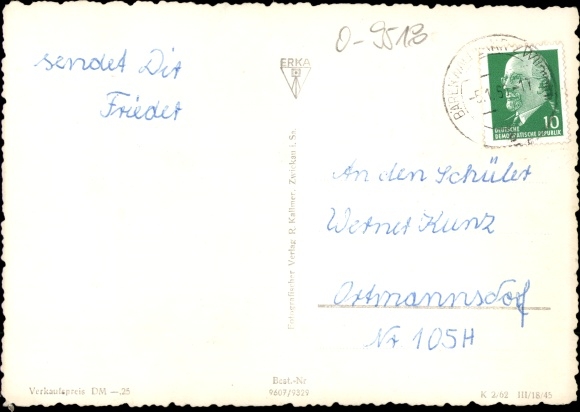 0-9513
sendet Dir
Frieder
ERKA
10
DEUTSCHE
DEMOKRATISCHE REPUBLIK
An den Schüler
Werner Kunz
Ortmannsdorf
Nr 105H
Fotografischer Verlag R. Kallmer, Zwickau i. Sa.
Verkaufspreis DM —,25
Best.-Nr
9607/9329
K 2/62 III/18/45